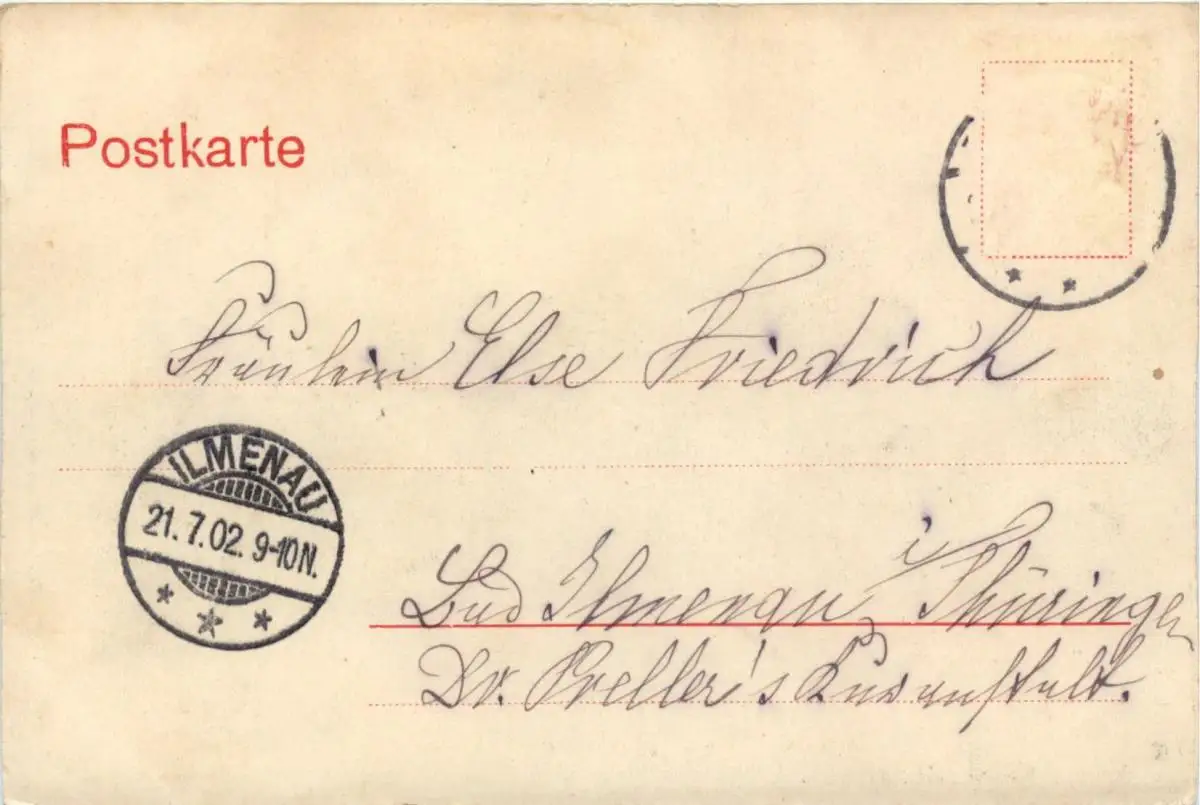 Postkarte
Fräulein Else Friedrich
ILMENAU
21.7.02. 9-10N.
Bad Ilmenau i/Thüringen
Dr. Preller's Kuranstalt.